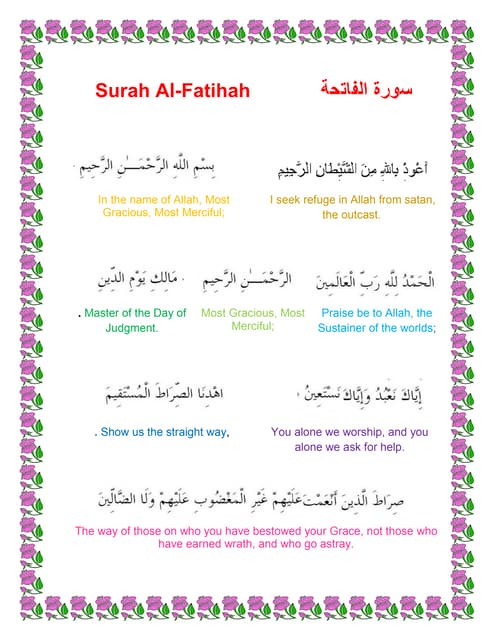 Surah Al-Fatihah سورة الفاتحة
أعُوذُ بِاللهِ مِنَ الشَّيْطَانِ الرَّجِيمِ
بِسْمِ اللَّهِ الرَّحْمَـــٰنِ الرَّحِيمِ .
I seek refuge in Allah from satan,
the outcast.
In the name of Allah, Most
Gracious, Most Merciful;
الْحَمْدُ لِلَّهِ رَبِّ الْعَالَمِينَ
الرَّحْمَـــٰنِ الرَّحِيمِ
. مَالِكِ يَوْمِ الدِّينِ
Praise be to Allah, the
Sustainer of the worlds;
Most Gracious, Most
Merciful;
. Master of the Day of
Judgment.
إِيَّاكَ نَعْبُدُ وَإِيَّاكَ نَسْتَعِينُ
اهْدِنَا الصِّرَاطَ الْمُسْتَقِيمَ
You alone we worship, and you
alone we ask for help.
. Show us the straight way,
صِرَاطَ الَّذِينَ أَنْعَمْتَ عَلَيْهِمْ غَيْرِ الْمَغْضُوبِ عَلَيْهِمْ وَلَا الضَّالِّينَ
The way of those on who you have bestowed your Grace, not those who
have earned wrath, and who go astray.